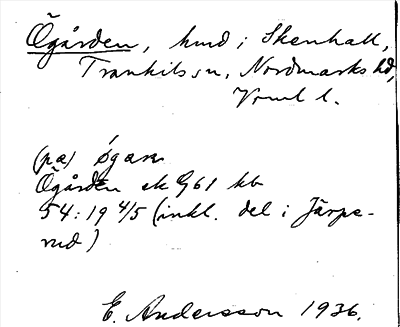 Ögården, hmd i Skenhall,
Trankils sn, Nordmarks hd,
Vrml l.
(på) øgaɳ
Ögården ek G61 kb
54:19 4/5 (inkl. del i Järpe-
rud)
E. Andersson 1936.